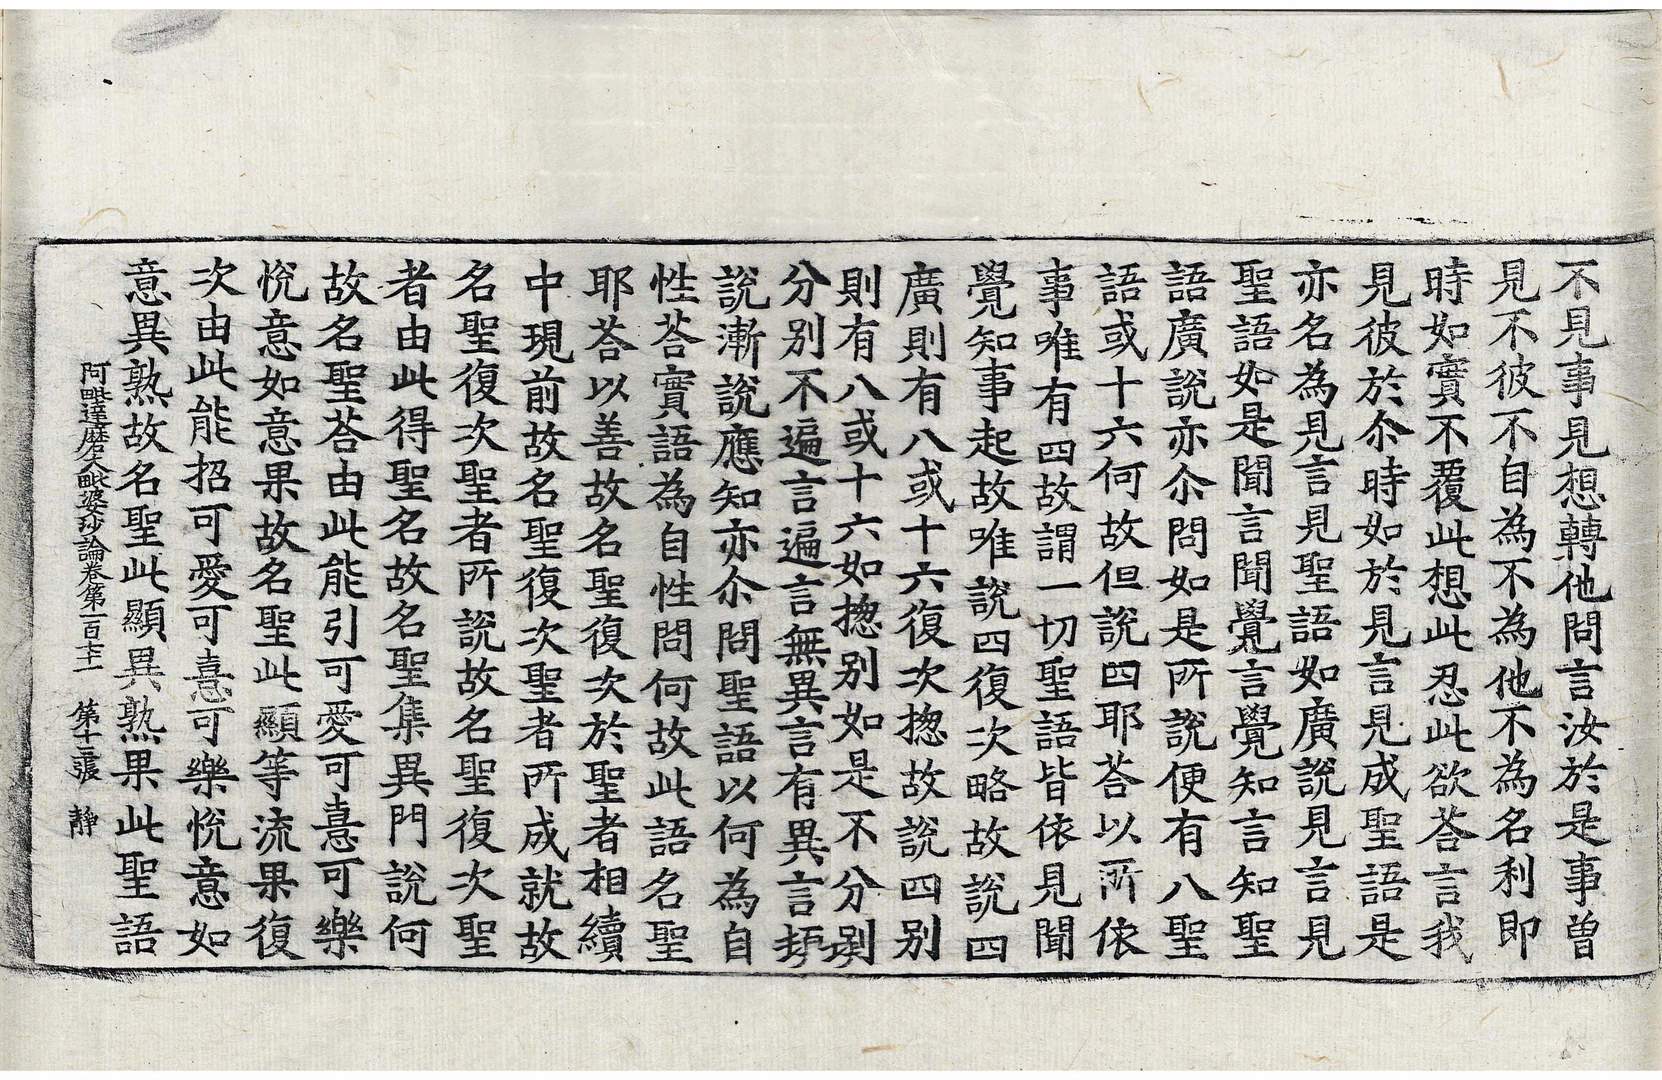 不見事見想轉他問言汝於是事曾
見不彼不自為不為他不為名利即
時如實不覆此想此忍此欲荅言我
見彼於尒時如於見言見成聖語是
亦名為見言見聖語如廣說見言見
聖語如是聞言聞覺言覺知言知聖
語廣說亦尒問如是所說便有八聖
語或十六何故但說四耶荅以所依
事唯有四故謂一切聖語皆依見聞
覺知事起故唯說四復次略故說四
廣則有八或十六復次揔故說四別
則有八或十六如揔別如是不分別
分別不遍言遍言無異言有異言頓
說漸說應知亦尒問聖語以何為自
性荅實語為自性問何故此語名聖
耶荅以善故名聖復次於聖者相續
中現前故名聖復次聖者所成就故
名聖復次聖者所說故名聖復次聖
者由此得聖名故名聖集異門說何
故名聖荅由此能引可愛可憙可樂
悅意如意果故名聖此顯等流果復
次由此能招可愛可憙可樂悅意如
意異熟故名聖此顯異熟果此聖語
阿毗達磨大毗婆沙論卷第一百七十一 第十二張 靜